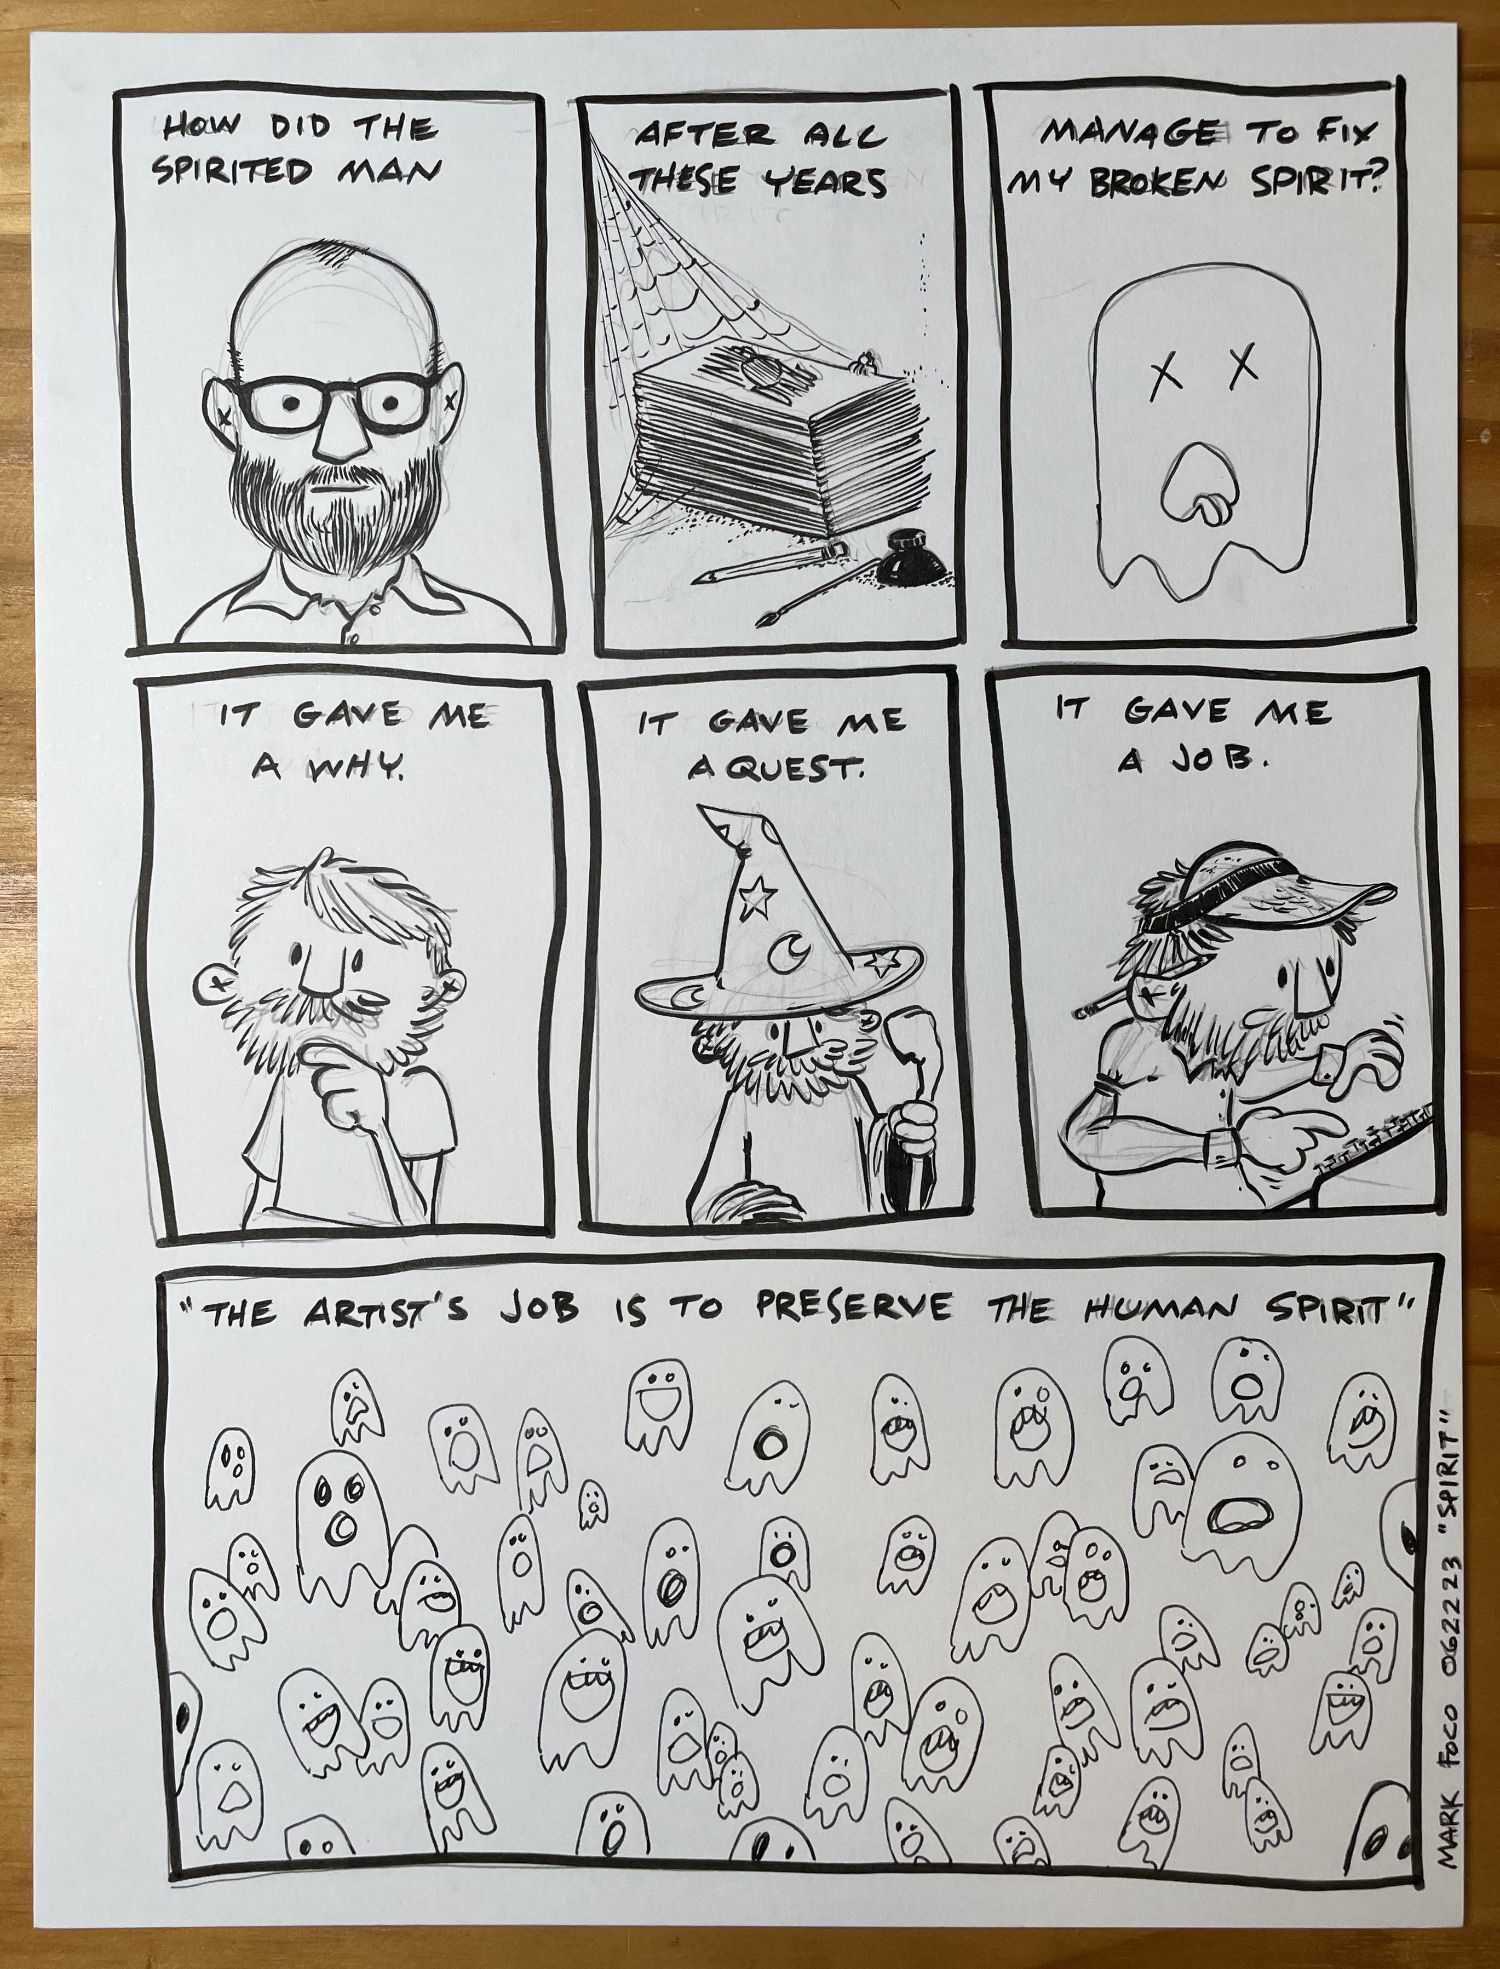 HOW DID THE
SPIRITED MAN
AFTER ALL
THESE YEARS
MANAGE TO FIX
MY BROKEN SPIRIT?
IT GAVE ME
A WHY.
IT GAVE ME
A QUEST.
IT GAVE ME
A JOB.
"THE ARTIST'S JOB IS TO PRESERVE THE HUMAN SPIRIT"
MARK FOCO 062223 "SPIRIT"